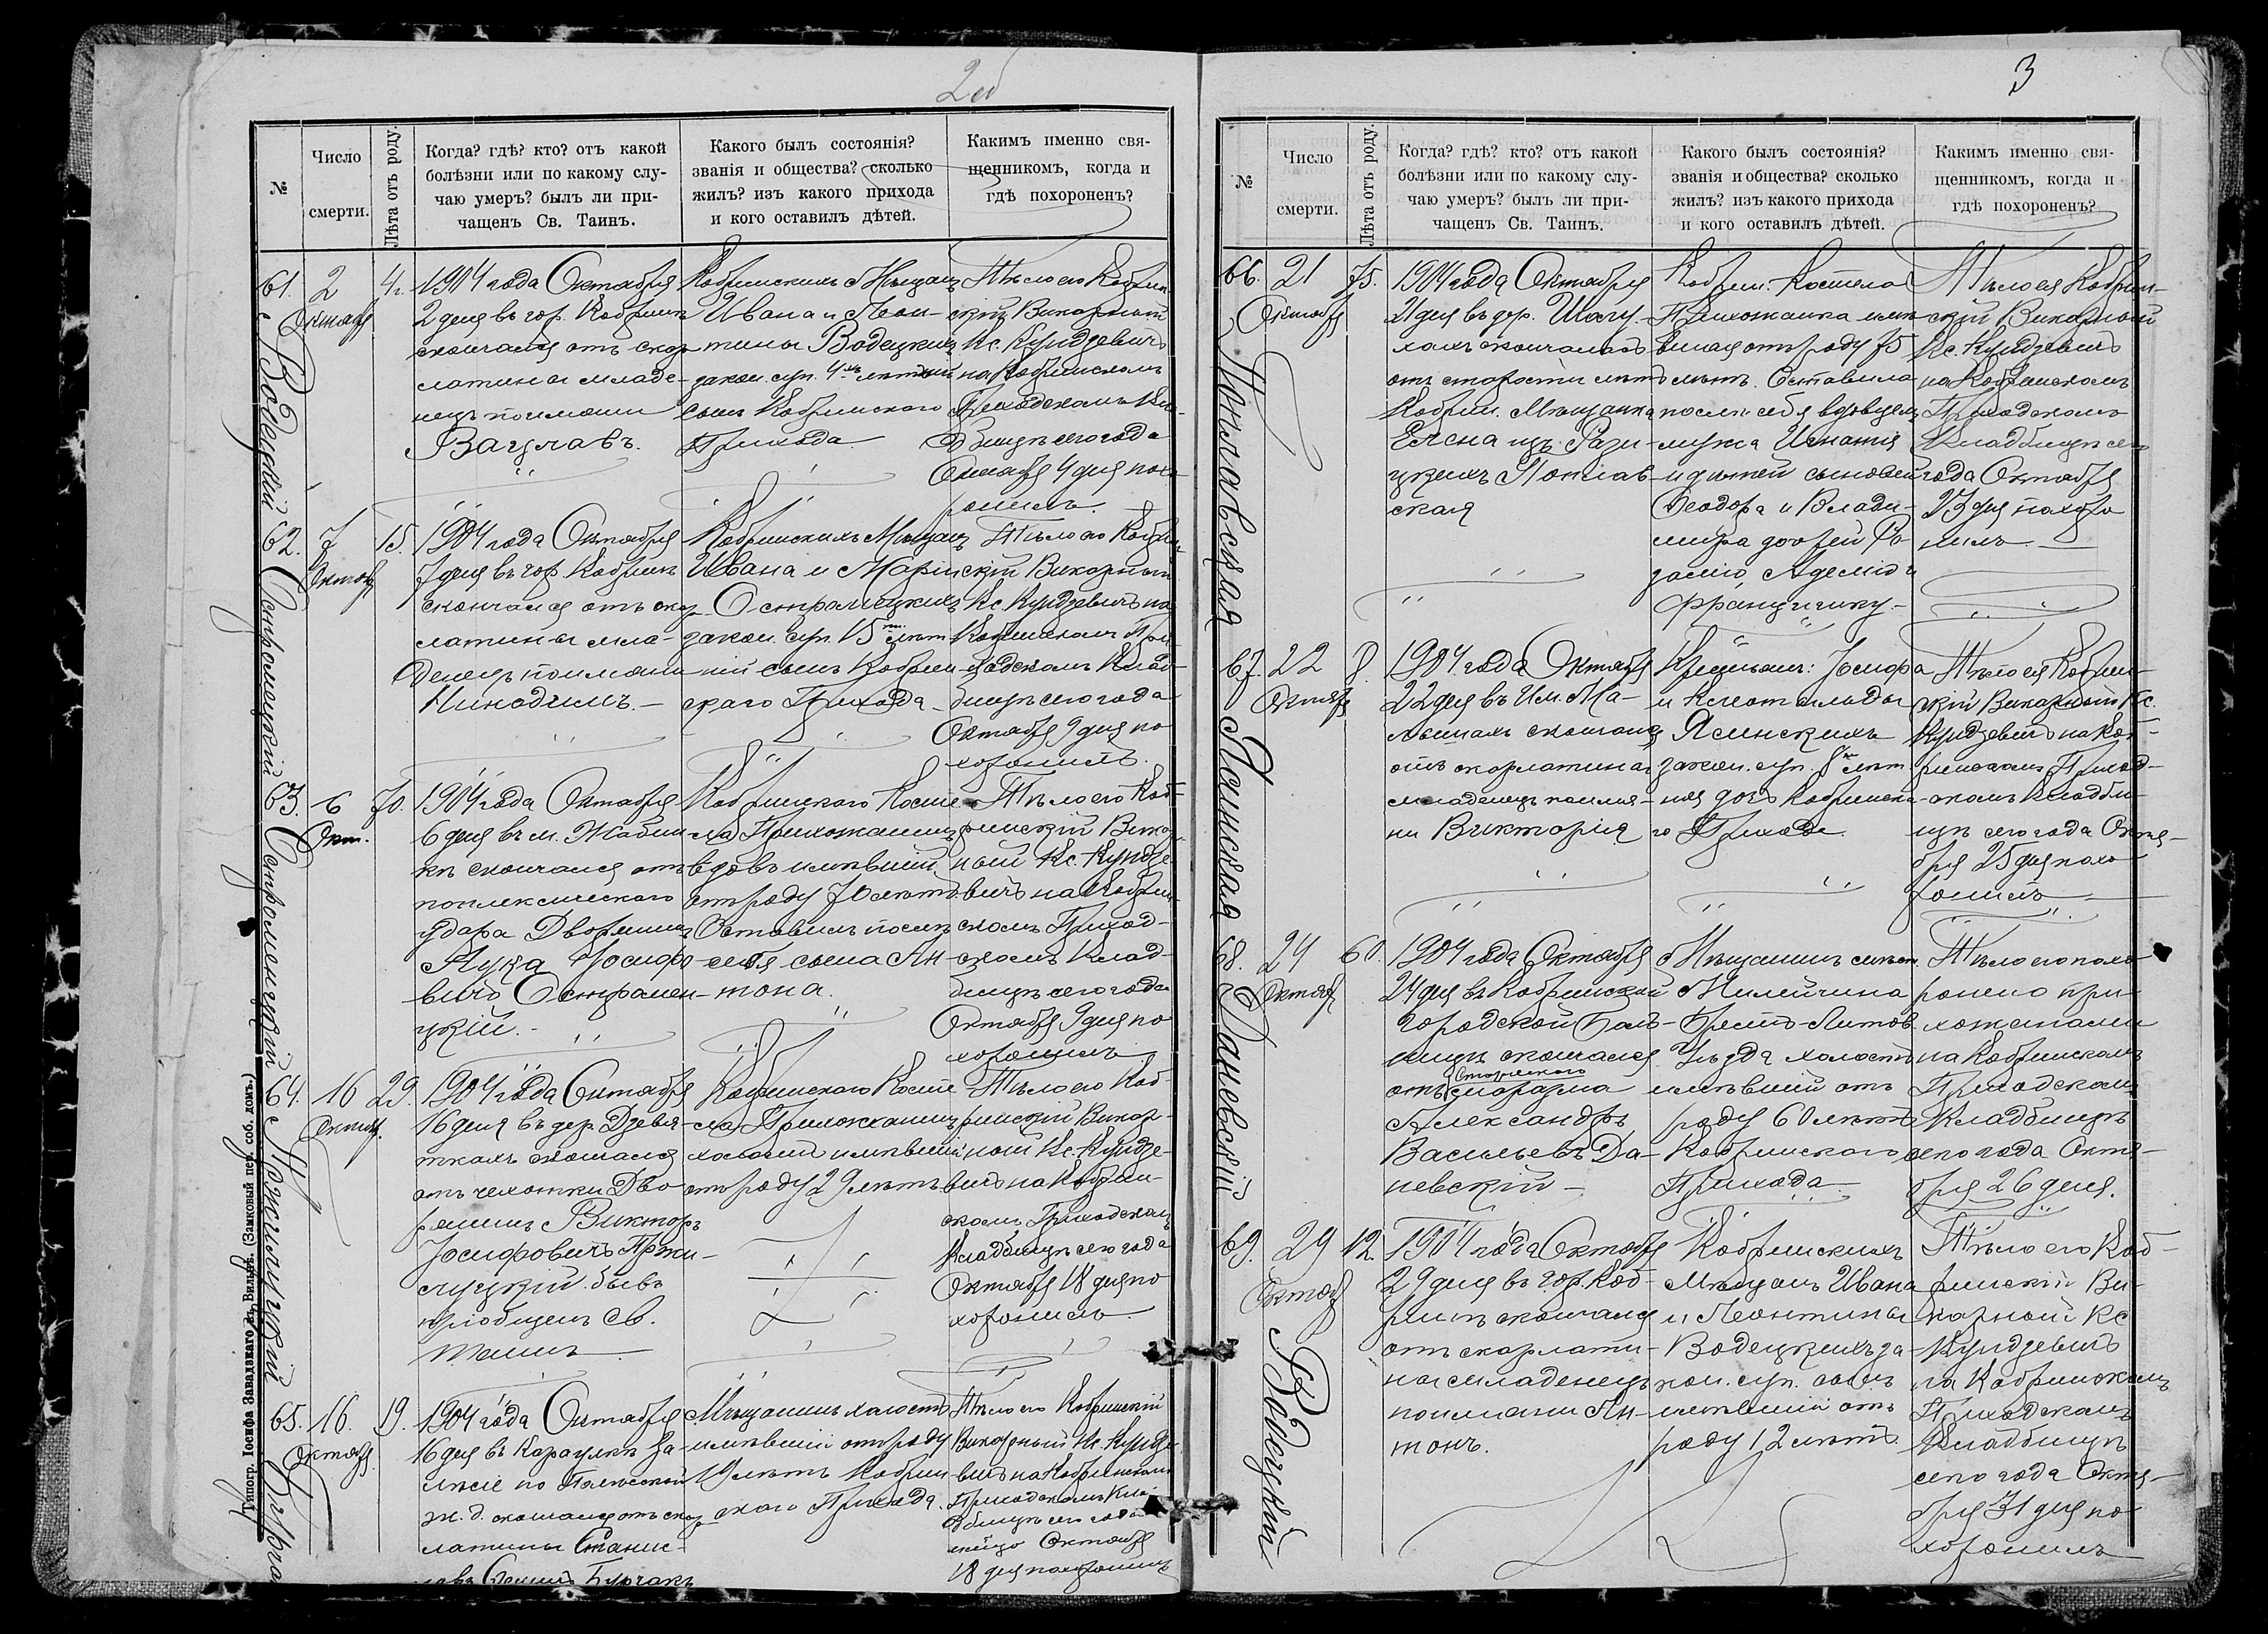 2об
№
Число
смерти.
Лѣта отъ роду.
Когда? гдѣ? кто? отъ какой
болѣзни или по какому слу-
чаю умеръ? былъ ли при-
чащенъ Св. Таинъ.
Какого былъ состоянія?
званія и общества? сколько
жилъ? изъ какого прихода
и кого оставилъ дѣтей.
Какимъ именно свя-
щенникомъ, когда и
гдѣ похороненъ?
61.
Водецкій
2
Октябр
4 г.
1904 года Октября
2 дня въ гор. Кобринѣ
скончался отъ скар
латины младе-
нецъ по имени
Вацлавъ.
Кобринскихъ Мѣщан
Ивана и Леон-
тины Водецкихъ
закон. суп. 4хъ лѣтній
сынъ Кобринскаго
Прихода
Тѣло его Кобрин
скій Викарный
Кс. Кундзевичъ
на Кобринскомъ
Приходскомъ Кла-
дбищѣ сего года
Октября 4 дня похо
ронилъ.
62.
Остромецкій
7
Октяб
15.
1904 года Октября
7 дня въ гор. Кобринѣ
скончался отъ скар
латины мла-
денецъ по имени
Никодимъ. —
Кобринскихъ Мѣщан
Ивана и Маріи
Остромецкихъ
закон. суп. 15 лѣт
ній сынъ Кобрин
скаго Прихода
Тѣло его Кобрин
скій Викарный
Кс. Кундзевичъ на
Кобринскомъ При
ходскомъ Клад-
бищѣ сего года
Октября 9 дня по
хоронилъ.
63.
Остроменцкій
6
Окт.
70.
1904 года Октября
6 дня въ м. Жабин
кѣ скончался отъ
поплексическаго
удара Дворянинъ
Лука Іосифо
вичъ Остромен-
цкій. —
Кобринскаго Косте
ла Прихожанинъ
вдовъ имѣвшій
отъ роду 70 лѣтъ
Оставилъ послѣ
себя сына Ан-
тона.
Тѣло его Коб-
ринскій Викар
ный Кс. Кундзе
вичъ на Кобрин
скомъ Приход-
скомъ Клад-
бищѣ сего года
Октября 9 дня по
хоронилъ
64.
16
Октяб.
29.
1904 года Октября
16 дня въ дер. Дзевя-
ткахъ скончался
отъ чехотки Дво
рянинъ Викторъ
Іосифовичъ
бывъ
пріобщенъ Св.
таинъ
Кобринскаго Косте
ла Прихожанинъ
холостъ имѣвшій
отъ роду 29 лѣтъ
Тѣло его Коб-
ринскій Викар-
ный Кс. Кундзе-
вичъ на Кобрин-
скомъ Приходскомъ
Кладбищѣ сего года
Октября 18 дня по
хоронилъ.
65.
16.
Октябр.
19.
1904 года Октября
16 дня въ Караулкѣ
по Полѣсской
ж. д. скончался отъ скар
латины Станис-
Мѣщанинъ холостъ
имѣвшій отъ роду
19 лѣтъ Кобрин
скаго Прихода.
Тѣло его Кобринскій
Викарный Кс. Кундзе
вичъ на Кобринскомъ
Приходскомъ Кла
дбищѣ сего года
Октября
18 дня похоронилъ
Типогр. Іосифа Завадзкаго въ Вильнѣ. (Замковый пер. соб. домъ.)
3
№
Число
смерти.
Лѣта отъ роду.
Когда? гдѣ? кто? отъ какой
болѣзни или по какому слу-
чаю умеръ? былъ ли при-
чащенъ Св. Таинъ.
Какого былъ состоянія?
званія и общества? сколько
жилъ? изъ какого прихода
и кого оставилъ дѣтей.
Какимъ именно свя-
щенникомъ, когда и
гдѣ похороненъ?
66.
21
Октябр
75.
1904 года Октября
21 дня въ дер.
скончалась
отъ старости лѣтъ
Кобрин. Мѣщанка
Елена изъ
ская
Кобрин. Костела
Прихожанка имѣ
вшая отъ роду 75
лѣтъ. Оставила
послѣ себя вдовцемъ
мужа Игнатія
и дѣтей сыновей
Феодора и Влади-
мира дочерей Ро
залію, Аделію и
Францишку —
Тѣло ея Кобрин-
скій Викарный
Кс. Кундзевичъ
на Кобринскомъ
Приходскомъ
Кладбищѣ сего
года Октября
23 дня похоро
нилъ. —
67.
Ясинская
22
Октябр
8.
1904 года Октября
22 дня въ Им. Ма-
скончалась
отъ скарлатины
младенецъ по име-
ни Викторія
Крестьян: Іосифа
и Клотильды
Ясинскихъ
закон. суп. 8 лѣт
няя дочь Кобринска-
го Прихода.
Тѣло ея Кобрин-
скій Викарный Кс.
Кундзевичъ на Коб-
ринскомъ Приход-
скомъ Кладби-
щѣ сего года Октя-
бря 25 дня похо
ронилъ
68.
Даневскій
24
Октяб
60.
1904 года Октября
24 дня въ Кобринской
городской Боль-
ницѣ скончался
отъ Старческаго маразма
Александръ
Васильевъ Да-
невскій —
Мѣщанинъ
Брестъ-Литов
Уѣзда холостъ
имѣвшій отъ
роду 60 лѣтъ
Кобринскаго
Прихода
Тѣло его похо
ронено при-
хожанами
на Кобринскомъ
Приходскомъ
Кладбищѣ
сего года Октя-
бря 26 дня.
69.
Водецкій
29
Октяб
12.
1904 года Октября
29 дня въ гор. Коб-
ринѣ скончался
отъ скарлати-
ны младенецъ
по имени Ан-
тонъ.
Кобринскихъ
Мѣщанъ Ивана
и Леонтины
Водецкихъ за-
кон. суп. сынъ
имѣвшій отъ
роду 12 лѣтъ.
Тѣло его Коб-
ринскій Ви-
карный Кс
Кундзевичъ
на Кобринскомъ
Приходскомъ
Кладбищѣ
сего года Октя-
бря 31 дня по
хоронилъ